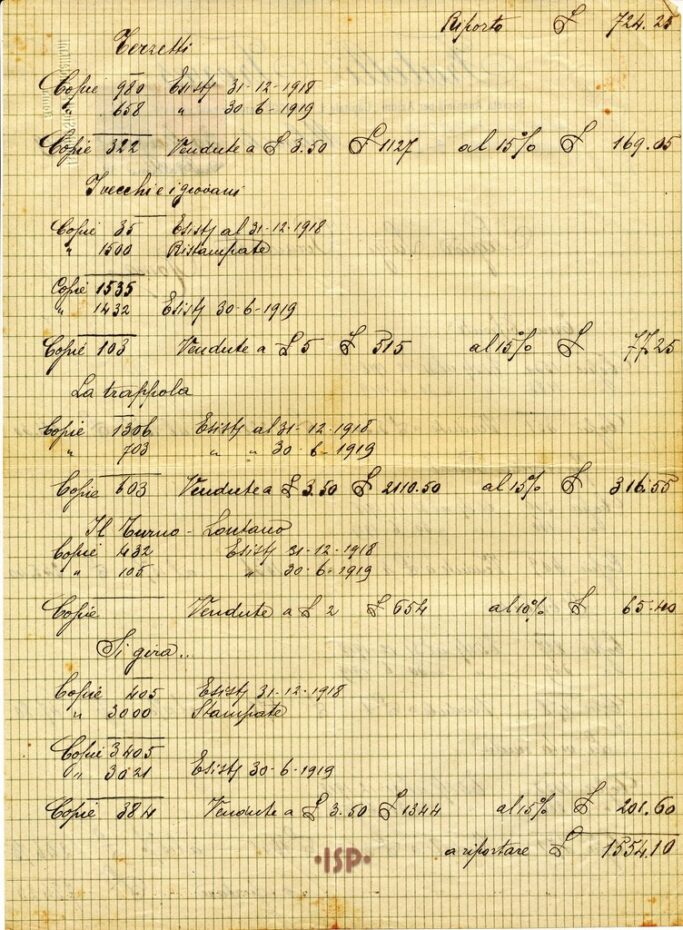 Riporto £ 724.25
Terzetti
Copie 980 Esistj 31-12-1918
" 658 " 30-6-1919
Copie 322 Vendute a £ 3.50 £ 1127 al 15% £ 169.05
I vecchi e i giovani
Copie 35 Esistj al 31-12-1918
" 1500 Ristampate
Copie 1535
" 1432 Esistj 30-6-1919
Copie 103 Vendute a £ 5 £ 515 al 15% £ 77.25
La trappola
Copie 1306 Esistj al 31-12-1918
" 703 " " 30-6-1919
Copie 603 Vendute a £ 3.50 £ 2110.50 al 15% £ 316.55
Il Turno - Lontano
Copie 432 Esistj 31-12-1918
" 105 " 30-6-1919
Copie Vendute a £ 2 £ 654 al 10% £ 65.40
Si gira..
Copie 405 Esistj 31-12-1918
" 3000 Stampate
Copie 3405
" 3021 Esistj 30-6-1919
Copie 384 Vendute a £ 3.50 £ 1344 al 15% £ 201.60
a riportare £ 1554.10
·ISP·